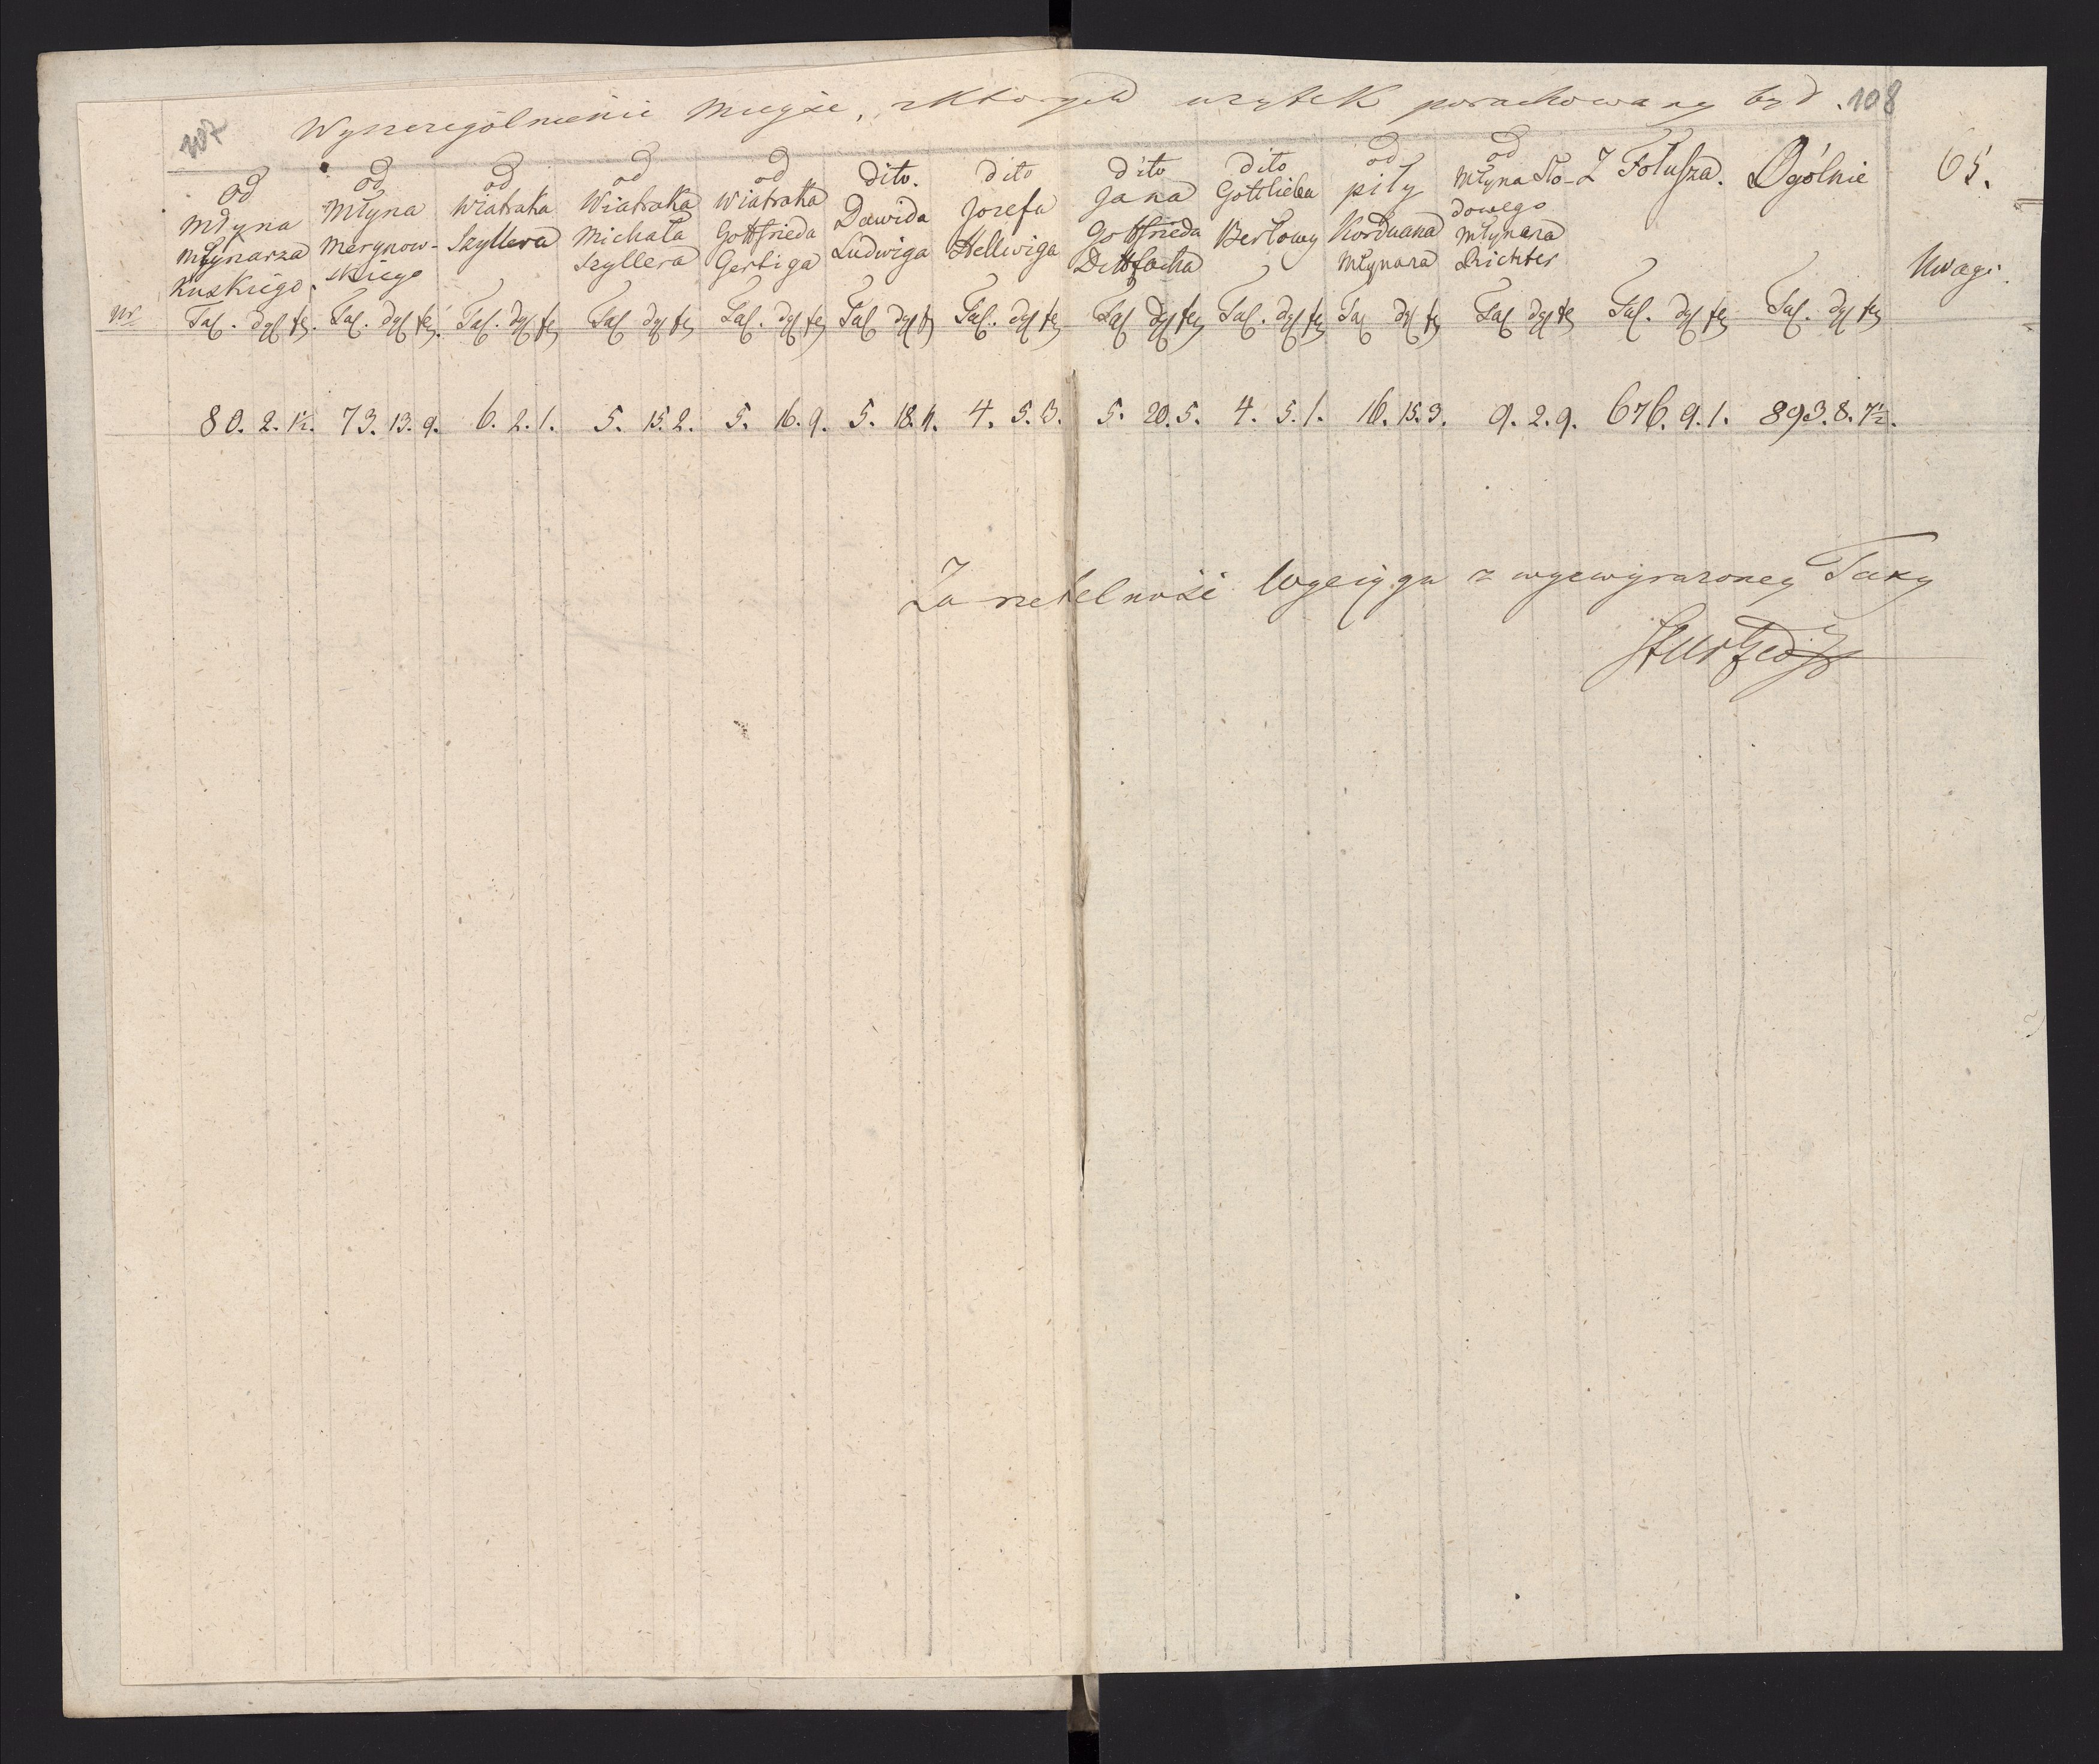 107
Wyszczególnienie Mieysc, z których uzytek porachowany był. 108
65.
od Młyna Młynarza Kuskiego.
od Młyna Merynowskiego
od Wiatraka Szyllera
od Wiatraka Michała Szyllera
od Wiatraka Gottfrieda Gertiga
dito. Dawida Ludwiga
dito Jozefa Hellwiga
dito Jana Gottfrieda
dito Gottlieba Bertowy
od piły Korduana Młynara
od Młyna Słodowego Młynara Richter
Z Folusza.
Ogólnie
Uwagi
Nr. Tal. dgl fe. Tal. dgl fe. Tal. dgl fe Tal dgl fe Tal. dgl fe Tal dgl f Tal. dgl fe Tal dgl fe Tal. dgl fe Tal dgl fe Tal dgl fe Tal. dgl fe Tal. dgl fe
80. 2. 1½. 73. 13. 9. 6. 2. 1. 5. 15. 2. 5. 16. 9. 5. 18. 11. 4. 5. 3. 5. 20. 5. 4. 5. 1. 16. 15. 3. 9. 2. 9. 676. 9. 1. 893. 8. 7½.
Za rzetelność wyciągu z wyzwyrazoney Taxy